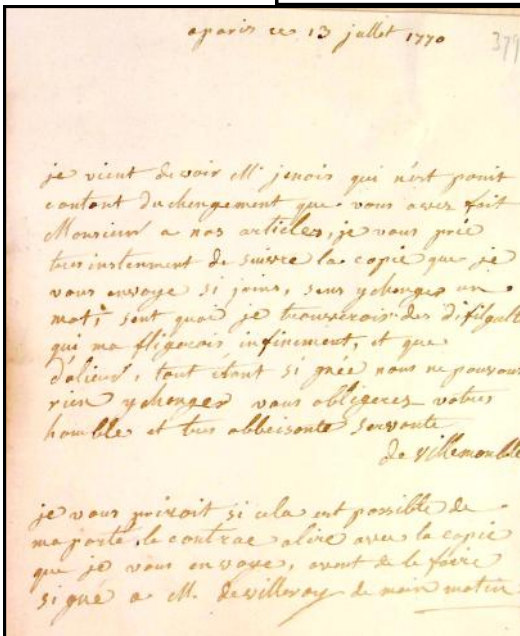 aparis ce 13 jullet 1770
379
je vient de voir Mr jenois qui n'est point
contant du chengement que vous avez fait
Monsieur a nos articles, je vous prie
tres instenment de suivre la copie que je
vous envoye si joins, sens y chenger un
mot, sent quoi je trouverois des difigult
qui ma fligerois infiniment, et que
d'alieur, tout étant si gnée nous ne pouvons
rien y chenger vous obligerez votres
homble et tres obbeisente servante
de villemomble
je vous prirait si cela est possible de
ma porté le contrae a lire avec la copie
que je vous envoye, avent de le faire
si gné a M. de villeroy de main matin